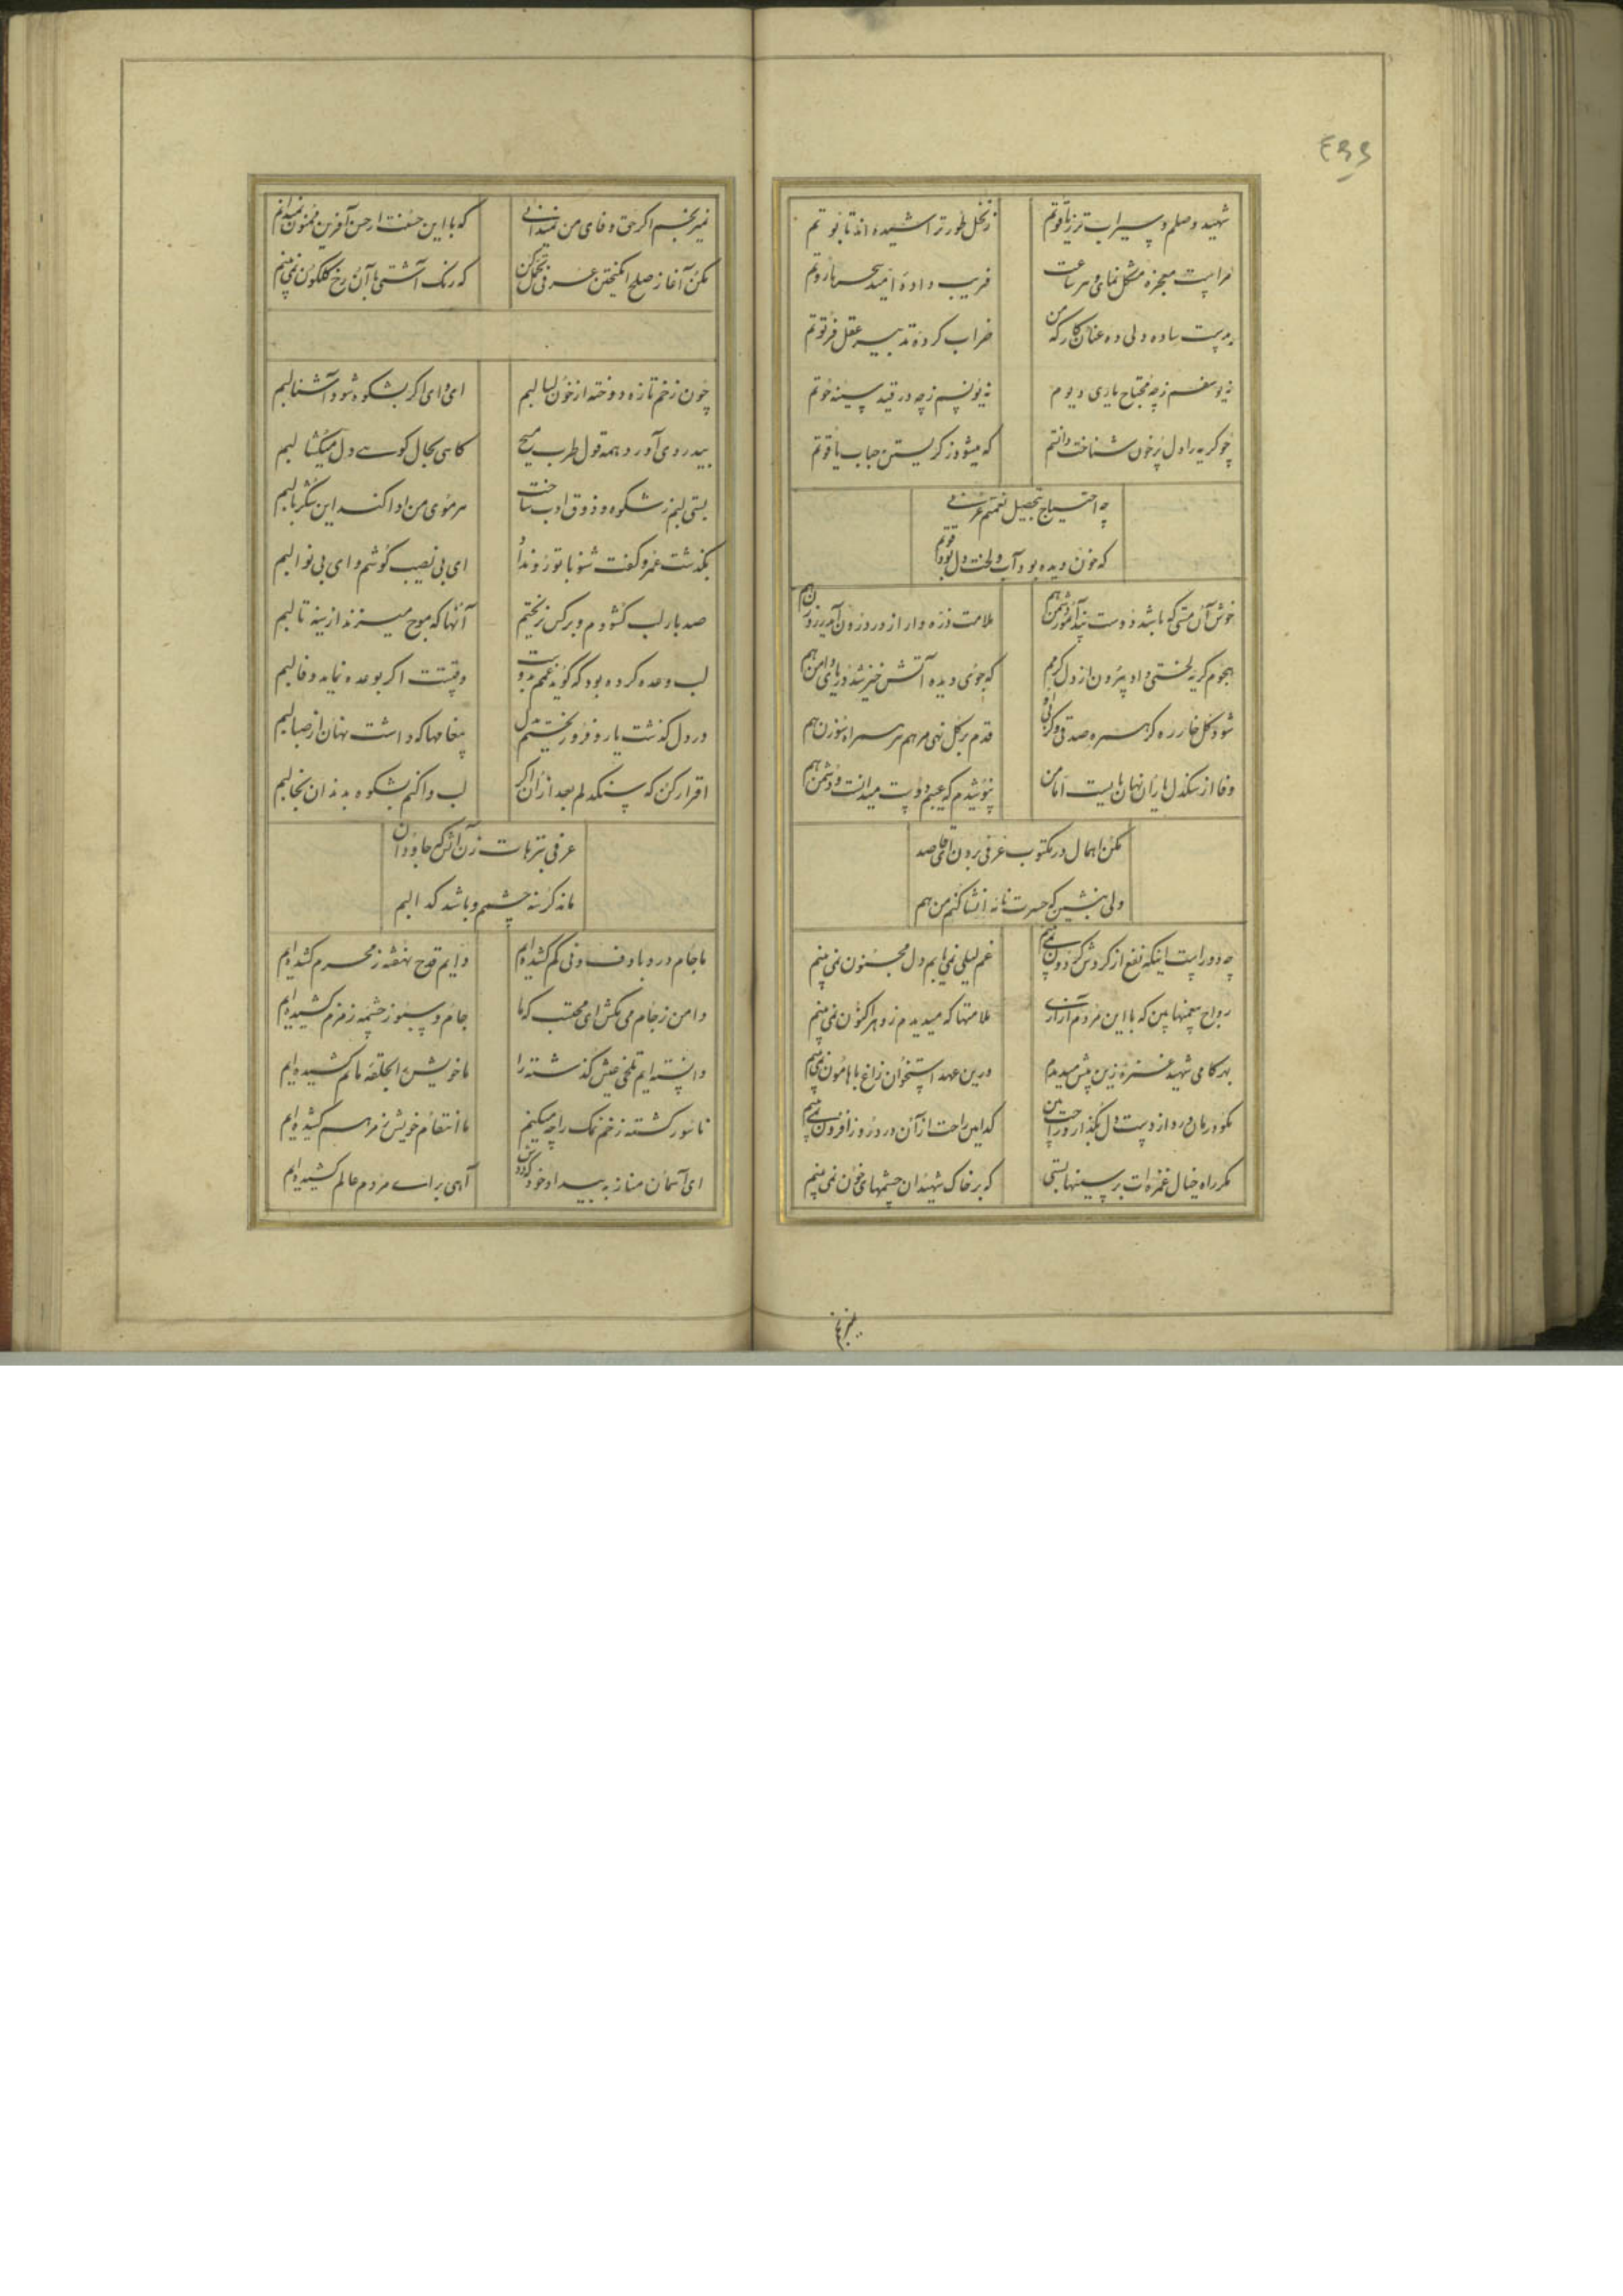 شهید وصلم و سیراب تر ز یاقوتم
ز نخل طور تراشیده اند تابوتم
مراست معجزه مشکل نمای هر ساعت
فریب داده امید سحر هاروتم
بدست ساده دلی ده عنان کار که من
خراب کرده تدبیر عقل فرتوتم
نه یوسفم ز چه محتاج یاری دیوم
نه یونسم ز چه در قید سینه حوتم
چو گریه را دل پر خون شناخت دانستم
که میشود ز گریستن حباب یاقوتم
چه احتیاج تحصیل نعمتم عرفی
که خون دیده بود آب و لخت دل قوتم
خوش آن مستی که باشد دوست
ملامت ذره وار از در و روزن
هجوم گریه لختی داد بیرون از دل گرمم
که جوی دیده آتش خیز شد دریای دامن هم
شود گل خار ره گر
قدم بر گل نهی مرهم سر راه سوزن هم
وفا از سنگدل یاران نهان
پوشیدم که عیبم دوست میدانست و دشمن هم
مکن اهمال در مکتوب عرفی بردن ای قاصد
ولی بنشین که حسرت نامه انشا کنم من هم
چه دورانست اینکه نفع از گردش گردون نمی بینم
غم لیلی نمی یابم دل مجنون نمی بینم
رواج بیغمیها بین که با این مردم آزاری
ملامتها که میدیدم ز دهر اکنون نمی بینم
بهر گامی شهید غمزه زین پیش میدیدم
درین عهد استخوان زاغ با هامون نمی بینم
بگو درمان درد از دوست دل بگذار
کدامین راحت از آن درد روز افزون نمی بینم
مگر راه خیال غمزه ات بر سینها بستی
که بر خاک شهیدان چشمهای خون نمی بینم
نمیرنجم اگر حق وفای من نمیدانی
که با این حسنت از حسن آفرین ممنون نمیدانم
مکن آغاز صلح انگیختن عرفی تحمل کن
که رنگ آشتی با آن رخ گلگون نمی بینم
چون زخم تازه دوخته از خون لبالبم
ای وای اگر بشکوه شود آشنا لبم
بیدردی آورد همه قول طرب مسیح
گاهی بحال کوسه دل میگشا لبم
بستی لبم ز شکوه و ذوق ادب شناخت
هر موی من ادا کند این شکر با لبم
بگذشت عمر و گفت شنو با تو رو نداد
ای بی نصیب گوشم و ای بی نوا لبم
صد بار لب گشودم و بر کس نریختم
آنها که موج میزند از سینه تا لبم
لب وعده کرده بود که گوید غمم بدوست
وقتست اگر بوعده نماید وفا لبم
در دل گذشت یار و فرو ریختم بدل
پیغامها که داشت نهان از صبا لبم
اقرار کن که سنگدلم بعد از آن اگر
لب وا کنم بشکوه بدندان بخا لبم
عرفی بترهات زن آتش که جاودان
ماند گرسنه چشم و باشد گدا لبم
ما جام درد بادف و نی کم کشیده ایم
دایم قدح نهفته ز محرم کشیده ایم
دامن ز جام می مکش ای محتسب که ما
جام و سبو ز چشمه زمزم کشیده ایم
دانسته ایم تلخی عیش گذشته را
تا خویش را بحلقه ماتم کشیده ایم
ناسور گشته زخم نمک را چه میکنیم
ما انتقام خویش ز مرهم کشیده ایم
ای آسمان مناز به بیداد خود که دوش
آهی برای مردم عالم کشیده ایم